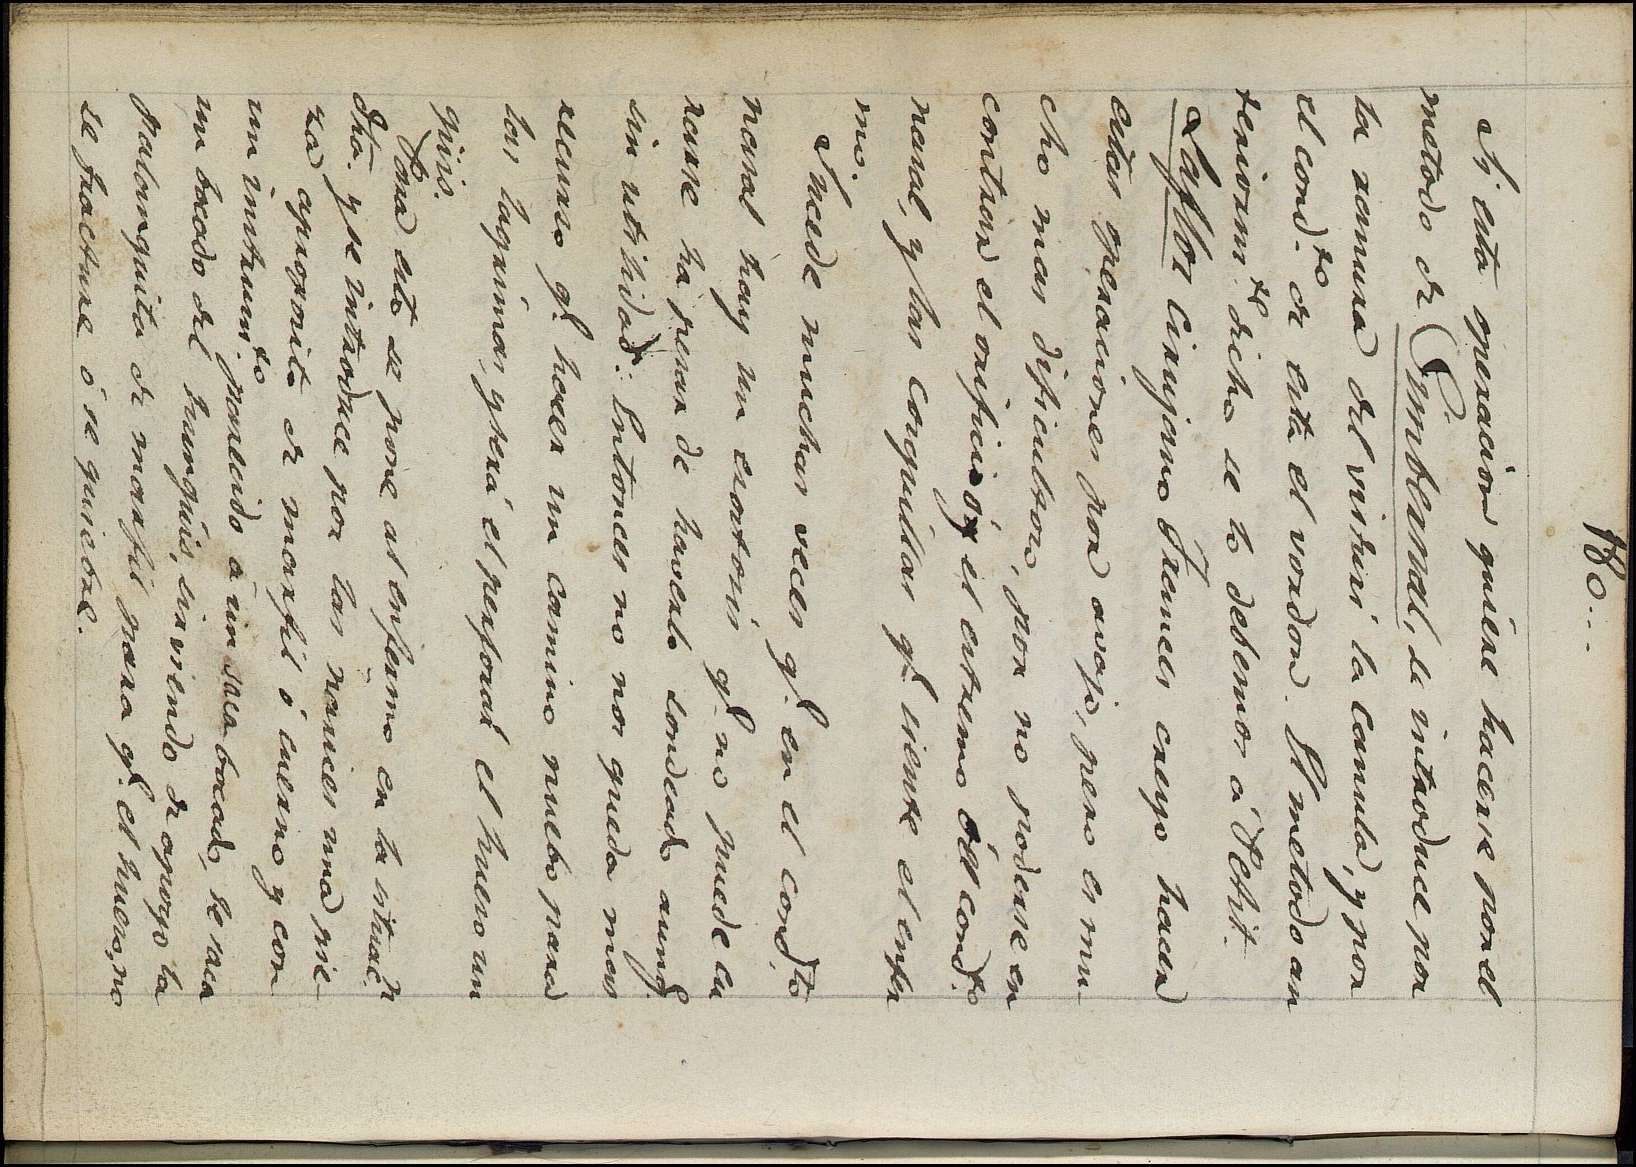 180...
Si esta operacion quiere hacerse por el
metodo de Cumblemel, se introduce por
la ranura del visturi la canula, y por
el cond.to de esta el vordon. El metodo an
teriorm.te dicho se lo debemos á Petit.
Lafflor Cirujano Frances creyo hacer
estas operaciones por avajo, pero es mu-
cho mas dificultoso, por no poderse en
contrar el orificio ó el estremo del cond.to
nasal, y las coquillas q.e siente el enfer
mo.
Sucede muchas veces q.e en el cond.to
nasal hay un exortosis q.e no puede cu
rarse ha pesar de haverlo sondeado aunq.e
sin utilidad. Entonces no nos queda mas
recurso q.e hacer un camino nuebo para
las lagrimas, y será el perforar el hueso un
guis.
Para esto se pone al enfermo en la situac.n
dha. y se introduce por las narices una pie-
za aproposito de marfil ó cuerno y con
un instrum.to parecido á un saca bocado, se saca
un bocado del hunguis, sirviendo de apoyo la
palanquita de marfil para q.e el hueso, no
se fracture ó se quiebre.